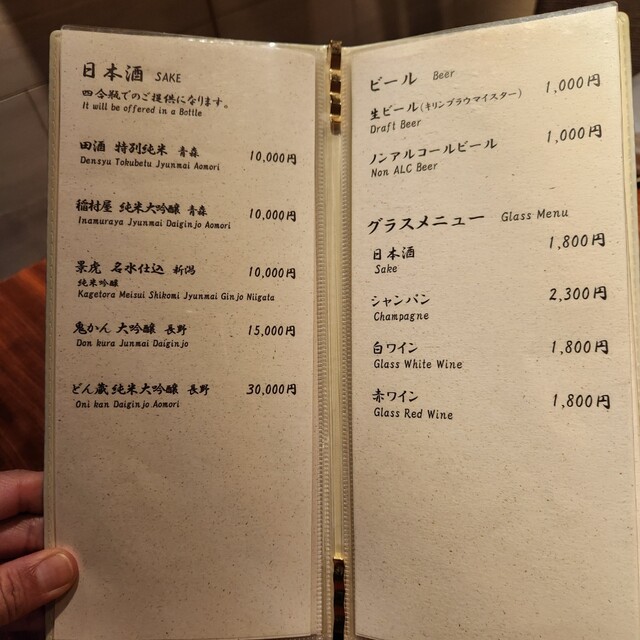 日本酒 SAKE
四合瓶でのご提供になります。
It will be offered in a Bottle
田酒 特別純米 青森 10,000円
Densyu Tokubetu Jyunmai Aomori
稲村屋 純米大吟醸 青森 10,000円
Inamuraya Jyunmai Daiginjo Aomori
景虎 名水仕込 新潟 10,000円
純米吟醸
Kagetora Meisui Shikomi Jyunmai Ginjo Niigata
鬼かん 大吟醸 長野 15,000円
Don kura Junmai Daiginjo
どん蔵 純米大吟醸 長野 30,000円
Oni kan Daiginjo Aomori
ビール Beer
生ビール(キリンブラウマイスター) 1,000円
Draft Beer
ノンアルコールビール 1,000円
Non ALC Beer
グラスメニュー Glass Menu
日本酒 1,800円
Sake
シャンパン 2,300円
Champagne
白ワイン 1,800円
Glass White Wine
赤ワイン 1,800円
Glass Red Wine